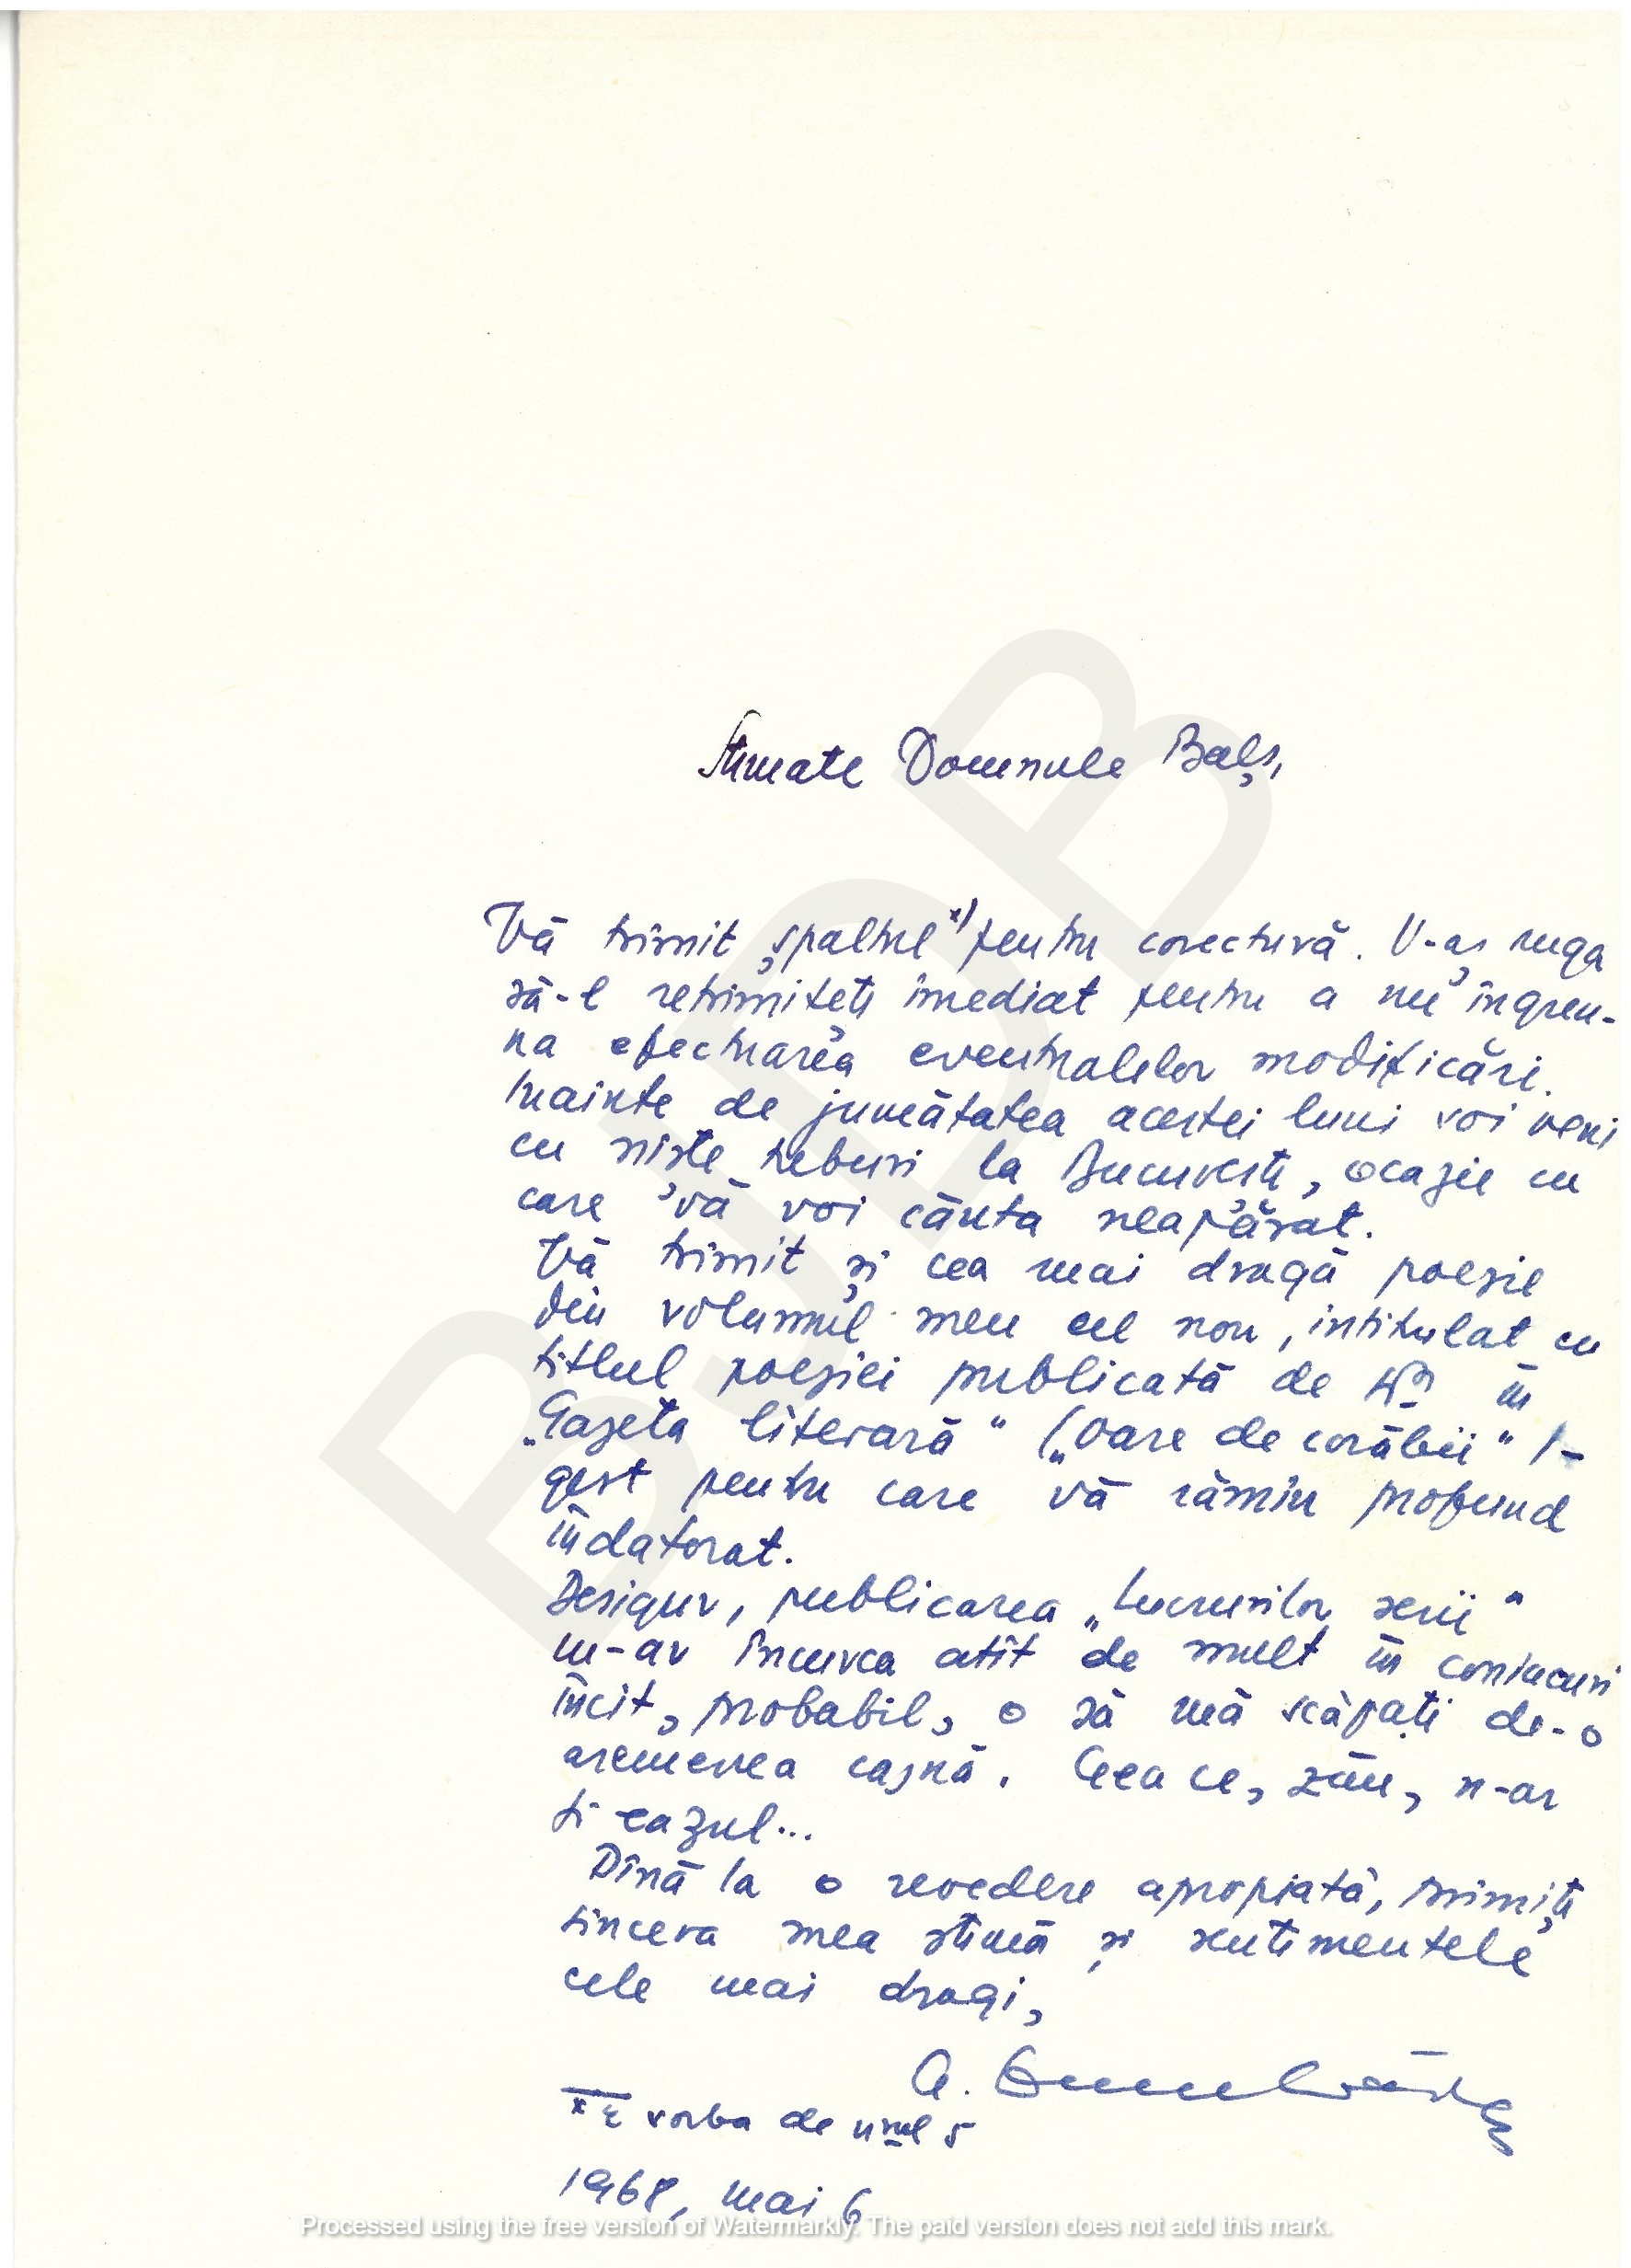 Stimate Domnule Balș,
Vă trimit șpaltul x) pentru corectură. V-aș ruga
să-l retrimiteți imediat pentru a nu îngreu-
na efectuarea eventualelor modificări.
Înainte de jumătatea acestei luni voi veni
cu niște treburi la București, ocazie cu
care vă voi căuta neapărat.
Vă trimit și cea mai dragă poezie
din volumul meu cel nou, intitulat cu
titlul poeziei publicată de Dv. în
„Gazeta literară" („Oase de corăbii") -
gest pentru care vă rămîn profund
îndatorat.
Desigur, publicarea „Lucrurilor serii"
m-ar încurca atît de mult în
încît, probabil, o să mă scăpați de-o
asemenea caznă. Ceea ce, zău, n-ar
fi cazul...
Pînă la o revedere apropiată, primiți
sincera mea stimă și sentimentele
cele mai dragi,
x E vorba de nrul 5
1968, mai 6
BJDB
Processed using the free version of Watermarkly. The paid version does not add this mark.